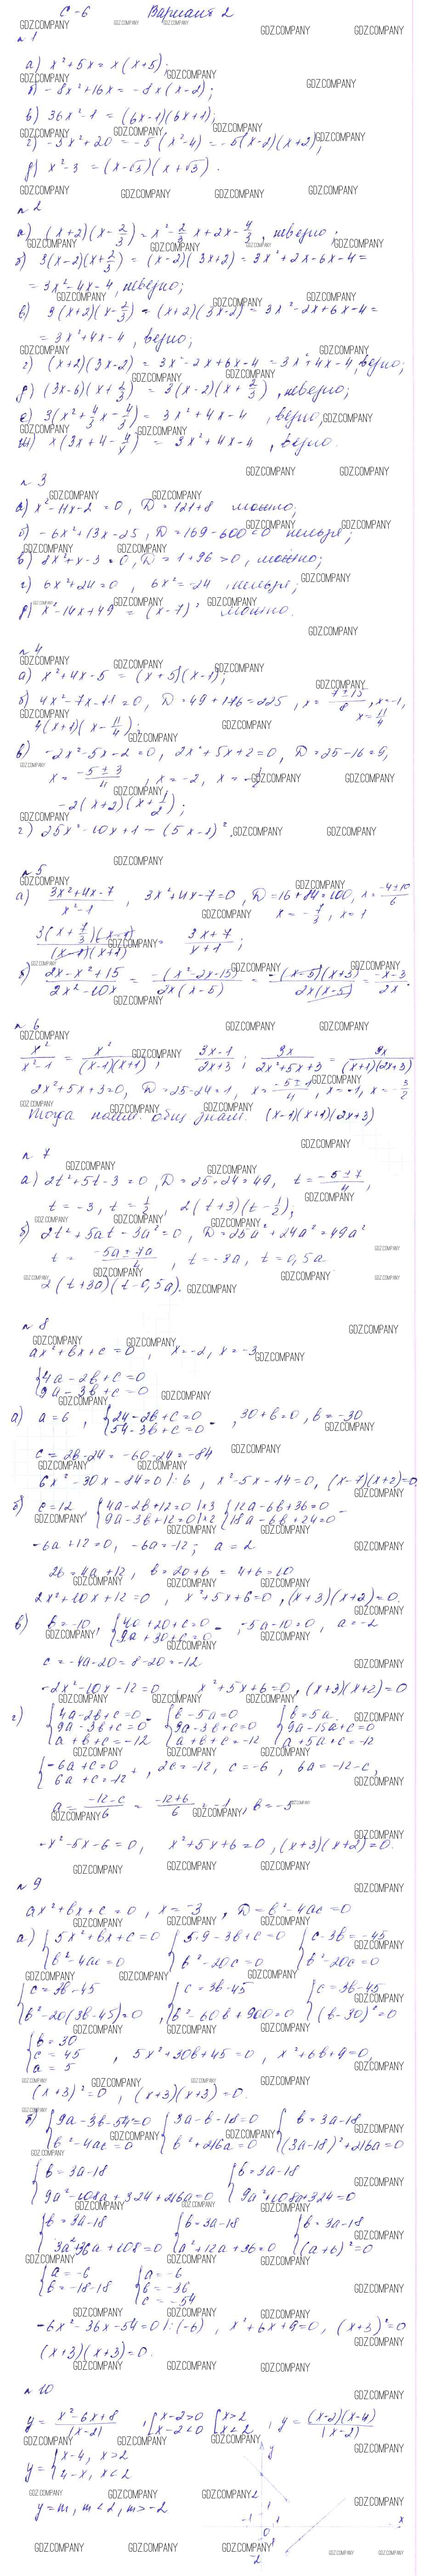 С-6 Вариант 2
№ 1
а) x² + 5x = x(x+5);
б) -8x² + 16x = -8x(x-2);
в) 36x² - 1 = (6x-1)(6x+1);
x² - 3 = (x-√3)(x+√3).
№ 2
а) (x+2)(x-2/3) = x² - 2/3 x + 2x - 4/3, неверно;
б) 3(x-2)(x+2/3) = (x-2)(3x+2) = 3x² + 2x - 6x - 4 =
= 3x² - 4x - 4, неверно;
в) 3(x+2)(x-2/3) = (x+2)(3x-2) = 3x² - 2x + 6x - 4 =
= 3x² + 4x - 4, верно;
г) (x+2)(3x-2) = 3x² - 2x + 6x - 4 = 3x² + 4x - 4, верно;
д) (3x-6)(x+2/3) = 3(x-2)(x+2/3), неверно;
е) 3(x² + 4/3 x - 4/3) = 3x² + 4x - 4, верно,
ж) x(3x+4-4/x) = 3x² + 4x - 4, верно.
№ 3
а) x² - 11x - 2 = 0, D = 121+8 можно;
б) -6x² + 13x - 25, D = 169 - 600 < 0 нельзя;
в) 8x² + x - 3 = 0, D = 1+96 > 0, можно;
г) 6x² + 24 = 0, 6x² = -24 нельзя;
д) x² - 14x + 49 = (x-7)² можно.
№ 4
а) x² + 4x - 5 = (x+5)(x-1);
б) 4x² - 7x - 11 = 0, D = 49 + 176 = 225, x = (7±15)/8, x = -1, x = 11/4
4(x+1)(x - 11/4);
в) -2x² - 5x - 2 = 0, 2x² + 5x + 2 = 0, D = 25 - 16 = 9,
x = (-5±3)/4, x = -2, x = -1/2
-2(x+2)(x+1/2);
г) 25x² - 10x + 1 = (5x-1)².
№ 5
а) (3x²+4x-7)/(x²-1), 3x² + 4x - 7 = 0, D = 16 + 84 = 100, x = (-4±10)/6
x = -7/3, x = 1
3(x+7/3)(x-1)/((x-1)(x+1)) = (3x+7)/(x+1);
б) (2x-x²+15)/(2x²-10x) = -(x²-2x-15)/(2x(x-5)) = -(x-5)(x+3)/(2x(x-5)) = (-x-3)/(2x).
№ 6
x²/(x²-1) = x²/((x-1)(x+1)); (3x-1)/(2x+3); 9x/(2x²+5x+3) = 9x/((x+1)(2x+3))
2x² + 5x + 3 = 0, D = 25 - 24 = 1, x = (-5±1)/4, x = -1, x = -3/2
Тогда наим. общ. знам. (x-1)(x+1)(2x+3)
№ 7
а) 2t² + 5t - 3 = 0, D = 25 - 24 = 49, t = (-5±7)/4,
t = -3, t = 1/2, 2(t+3)(t-1/2),
б) 2t² + 5at - 3a² = 0, D = 25a² + 24a² = 49a²
t = (-5a±7a)/4, t = -3a, t = 0,5a
2(t+3a)(t-0,5a).
№ 8
ax² + bx + c = 0, x = -2, x = -3
{4a - 2b + c = 0
9a - 3b + c = 0
а) a = 6, {24 - 2b + c = 0
54 - 3b + c = 0 -, 30 + b = 0, b = -30
c = 2b - 24 = -60 - 24 = -84
6x² - 30x - 84 = 0 |:6, x² - 5x - 14 = 0, (x-7)(x+2) = 0
б) c = 12 {4a - 2b + 12 = 0 |×3 {12a - 6b + 36 = 0
9a - 3b + 12 = 0 |×2 18a - 6b + 24 = 0 -
-6a + 12 = 0, -6a = -12; a = 2
2b = 4a + 12, b = 2a + 6 = 4 + 6 = 10
2x² + 10x + 12 = 0, x² + 5x + 6 = 0, (x+3)(x+2) = 0.
в) b = -10, {4a + 20 + c = 0
9a + 30 + c = 0 -, -5a - 10 = 0, a = -2
c = -4a - 20 = 8 - 20 = -12
-2x² - 10x - 12 = 0 x² + 5x + 6 = 0, (x+3)(x+2) = 0
г) {4a - 2b + c = 0 {b - 5a = 0 {b = 5a
9a - 3b + c = 0 9a - 3b + c = 0 9a - 15a + c = 0
a + b + c = -12 a + b + c = -12 a + 5a + c = -12
{-6a + c = 0
6a + c = -12 +, 2c = -12, c = -6, 6a = -12 - c,
a = (-12-c)/6 = (-12+6)/6 = -1, b = -5
-x² - 5x - 6 = 0, x² + 5x + 6 = 0, (x+3)(x+2) = 0.
№ 9
ax² + bx + c = 0, x = -3, D = b² - 4ac = 0
а) {5x² + bx + c = 0 {5·9 - 3b + c = 0 {c - 3b = -45
b² - 4ac = 0 b² - 20c = 0 b² - 20c = 0
{c = 3b - 45 {c = 3b - 45 {c = 3b - 45
b² - 20(3b-45) = 0, b² - 60b + 900 = 0 (b-30)² = 0
{b = 30
c = 45
a = 5, 5x² + 30b + 45 = 0, x² + 6b + 9 = 0,
(x+3)² = 0, (x+3)(x+3) = 0.
б) {9a - 3b - 54 = 0 {3a - b - 18 = 0 {b = 3a - 18
b² - 4ac = 0 b² + 216a = 0 (3a-18)² + 216a = 0
{b = 3a - 18 {b = 3a - 18
9a² - 108a + 324 + 216a = 0 9a² + 108a + 324 = 0
{b = 3a - 18 {b = 3a - 18 {b = 3a - 18
3a² + 36a + 108 = 0 a² + 12a + 36 = 0 (a+6)² = 0
{a = -6 {a = -6
b = -18 - 18 b = -36
c = -54
-6x² - 36x - 54 = 0 |:(-6), x² + 6x + 9 = 0, (x+3)² = 0
(x+3)(x+3) = 0.
№ 10
y = (x²-6x+8)/|x-2|, [x-2 > 0 [x > 2
x-2 < 0 x < 2, y = (x-2)(x-4)/|x-2|
y = {x-4, x > 2
4-x, x < 2
y = m, m < 2, m > -2
y
2
1
-1
0
1
x
-2
GDZ.COMPANY